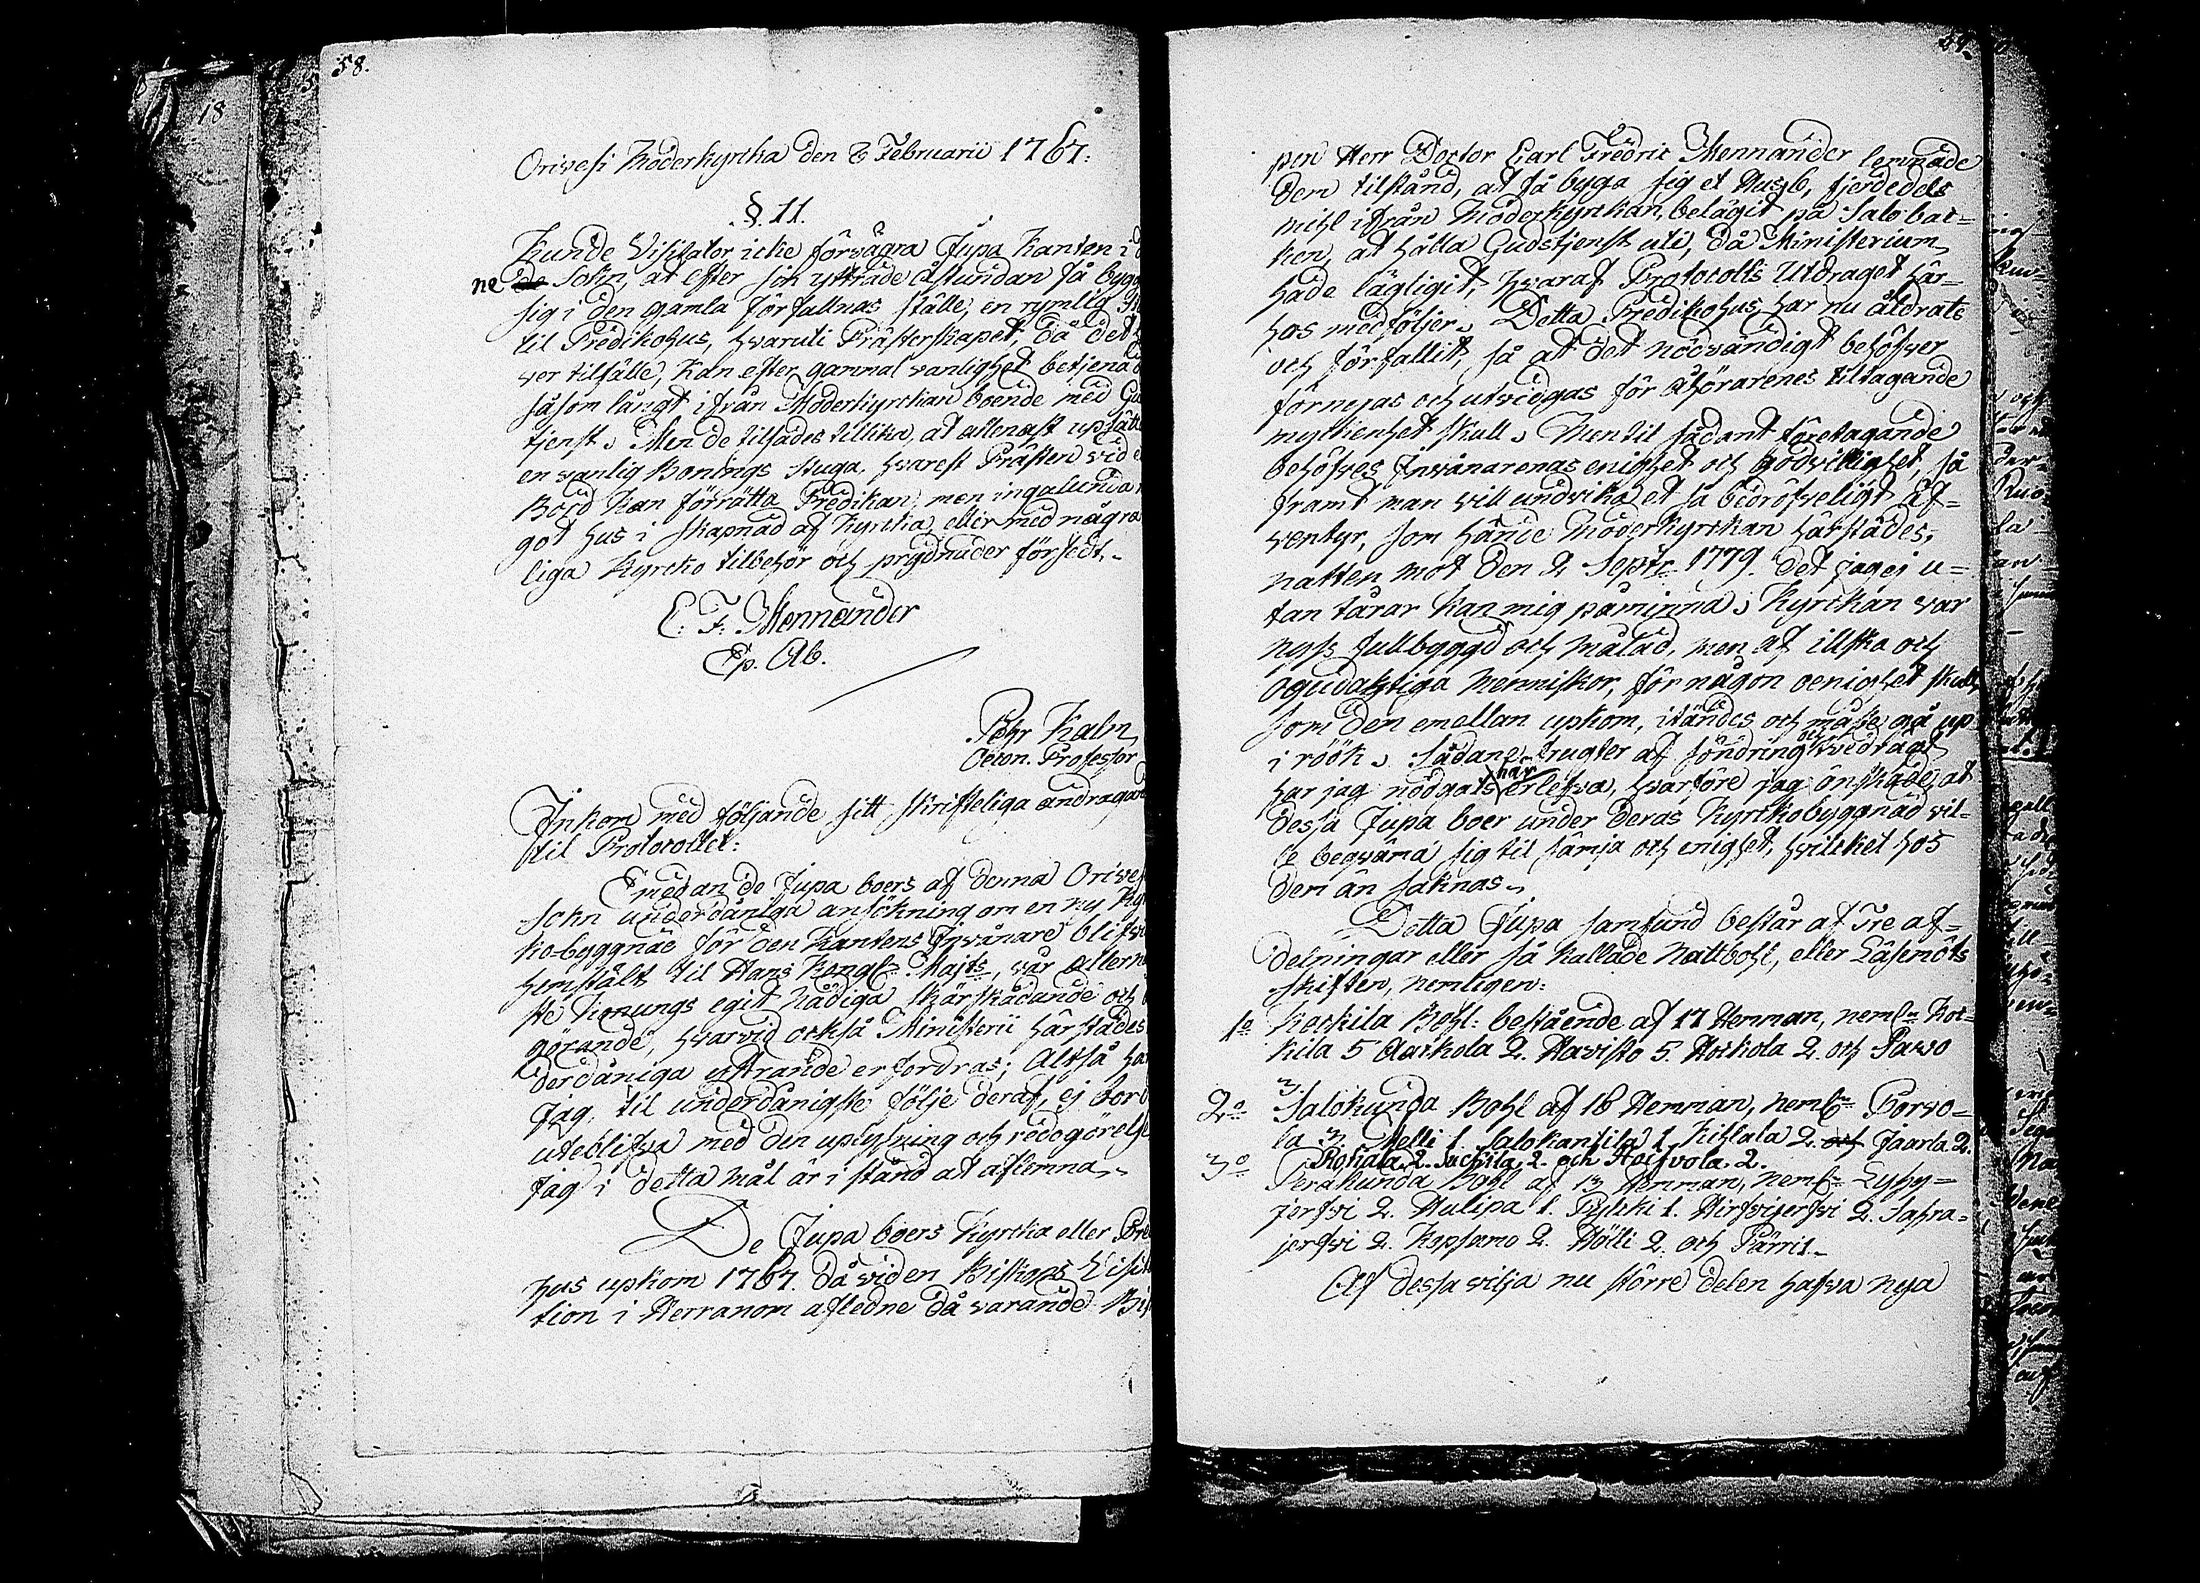 58.
Orivesi Moderkyrcka den 8 Februarii 1767.
§. 11.
Kunde Visitator icke förvägra Jupa Kanten i
ne Sokn, at efter sin yttrade åstundan få bygg
sig i den gamla förfallnas ställe, en rymlig
til Predikohus, hvaruti Prästerskapet, då det
ver tilfälle, kan efter gammal vanlighet betjena
såsom långt ifrån Moderkyrckan boende med Gu
tjenst. Men de tilsades tillika, at allenast upsätt
en vanlig Bonings Stuga, hvarest Prästen vid
Bord kan förrätta Predikan, men ingalunda
got hus i skapnad af Kyrcka, eller med några
liga Kyrcko tilbehör och prydnader försedt.
C. F. Mennander
Ep. Ab.
Pehr Kalm
Oecon. Professor
Inkom med följande sitt skrifteliga andragan
til Protocollet:
Emedan de Jupa boers af denna Orives
Sokn underdåniga ansökning om en ny Kyr
ko-byggnad för den Kantens Invånare blifvi
hemstält til Hans Kongl. Majts, vår allernå
ste Konungs egit nådiga skärskådande och
görande, hvarvid också Ministerii härstädes
derdåniga yttrande erfordras; Altså har
Jag, til underdånigste följe deraf, ej bord
uteblifva med den uplysning och redogörelse
jag i detta mål är i stånd at aflemna.
De Jupa boers Kyrcka eller Pre
hus upkom 1767. då vid en Biskops Visita
tion i Herranom afledne då varande Bis
pen Herr Doctor Carl Fredric Mennander lemnade
dem tilstånd, at få byga sig et Hus 6, fjerdedels
mihl ifrån Moderkyrckan, belägit på Salo bac=
ken, at hålla Gudstjenst uti, då Ministerium
hade lägligit, hvaraf Protocolls Utdraget här=
hos medföljer. Detta Predikohus har nu åldrats
och förfallit, så at det nödvändigt behöfver
förnyas och utvidgas för Åhörarenes tiltagande
myckenhet skull. Men til sådant företagande
behöfves Invånarenas enighet och godvillighet, så
framt man vill undvika et så bedröfveligt äf=
ventyr, som hände Moderkyrckan härstädes,
natten mot den 2 Septr. 1779. det jag ej u=
tan tårar kan mig påminna. Kyrckan var
nyss fullbyggd och målad, men af illska och
ogudaktiga menniskor, för någon oenighet skull
som dem emellan upkom, itändes och måste gå up
i röök. Sådane frugter af söndring och tvedrägt
har jag nödgats här erfa, hvarföre jag önskade, at
dessa Jupa boer under deras Kyrckobyggnad vil=
le begväma sig til sämja och enighet, hvilcket hos
dem än saknas.
Detta Jupa samfund består af Tre af=
delningar eller så kallade Nattbohl, eller Läsemöts
skiften, nemligen:
1o Kockila Bohl: bestående af 17 Hemman, neml. Koc=
kila 5 Aackola 2. Havisto 5. Hockola 2. och Pawo
3.
2o Salokunda Bohl af 16 Hemman, neml. Porvo=
la 3. Melli 1. Salokansila 1. Kihlala 2. och Jaarla 2.
Rohala. 2. Suckila. 2. och Hoifvola. 2.
3o Peräkunda Bohl af 13 Hemman, neml. Lyhy=
jerfvi 2. Hulipa 1. Pylcki 1. Hirfvijerfvi 2. Sahra=
jerfvi 2. Kopsamo 2. Hölli 2. och Pärri 1.
Af dessa vilja nu större delen hafva nya